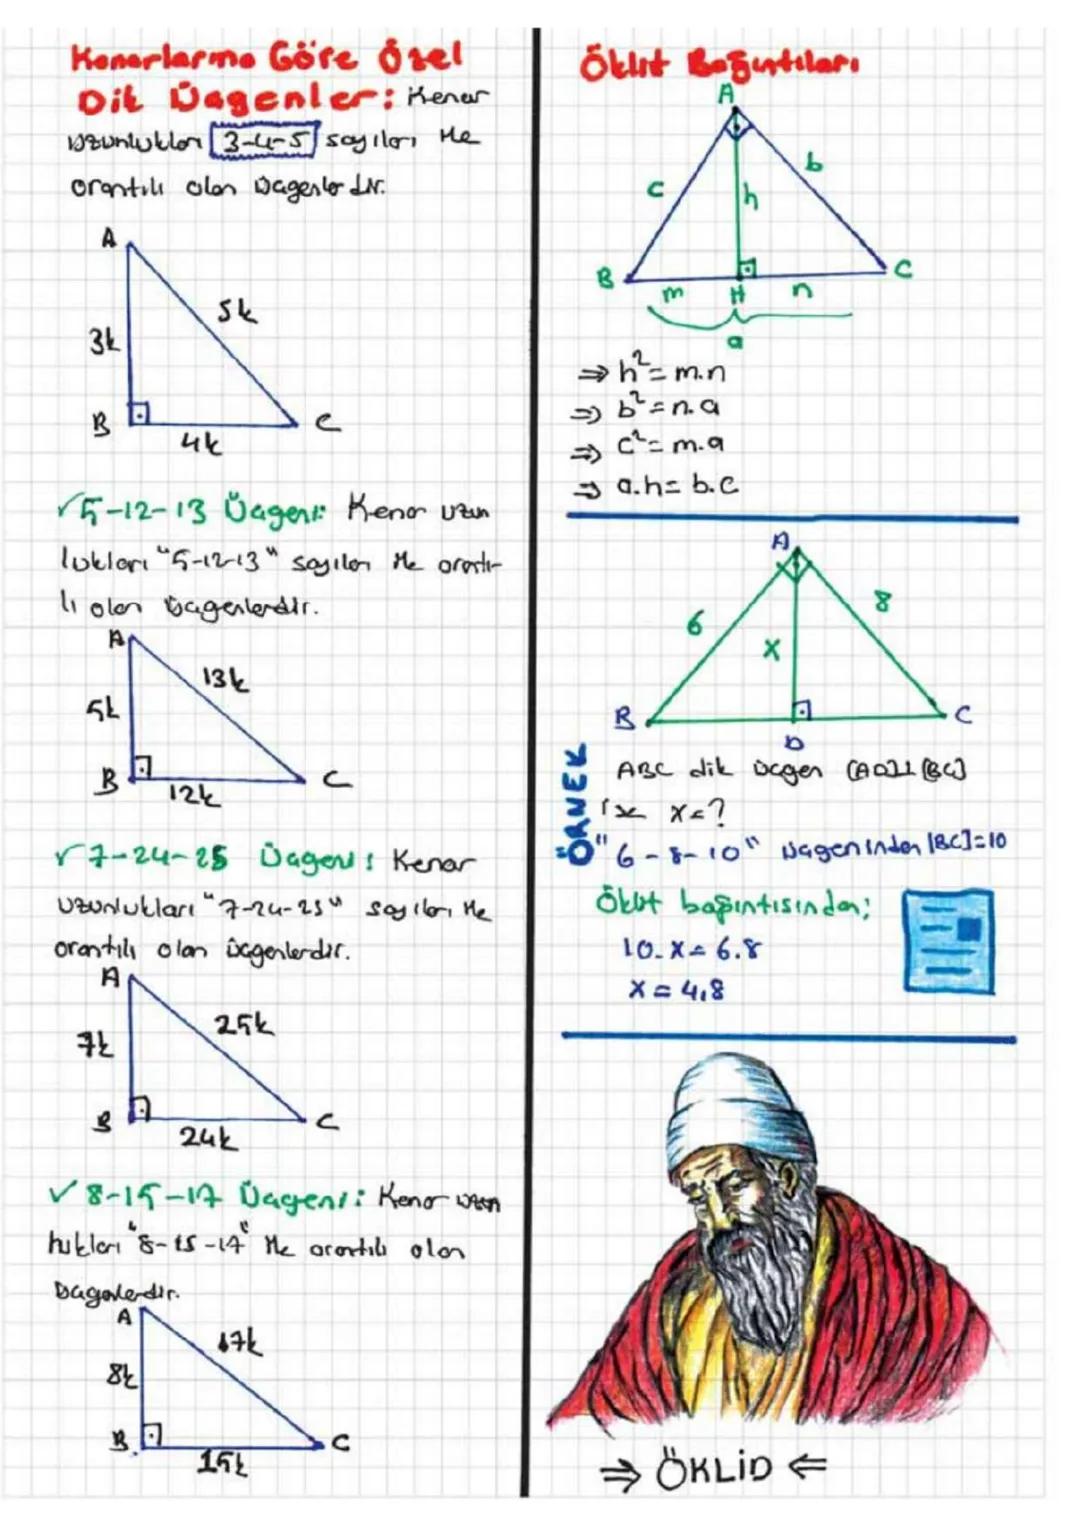 Kenarlarına Göre Özel
Dik Üçgenler: Kenar
uzunlukları 3-4-5 sayıları ile
orantılı olan üçgenlerdir.
A
5k
3k
B
C
4k
✓5-12-13 Üçgeni: Kenar uzun
lukları "5-12-13" sayıları ile orantı-
lı olan üçgenlerdir.
A
13k
5k
B
C
12k
✓7-24-25 Üçgeni: Kenar
uzunlukları "7-24-25" sayıları ile
orantılı olan üçgenlerdir.
A
25k
7k
B
C
24k
✓8-15-17 Üçgeni: Kenar uzun
lukları "8-15-17" ile orantılı olan
üçgenlerdir.
A
17k
8k
B
C
15k
Öklit Bağıntıları
A
b
c
h
B
C
m H n
a
⇒ h²= m.n
⇒ b²= n.a
⇒ c²= m.a
⇒ a.h= b.c
A
8
6
x
B
C
D
ÖRNEK
ABC dik üçgen [AD]⊥[BC]
ise x=?
"6-8-10" üçgeninden |BC|=10
Öklit bağıntısından;
10.x= 6.8
x = 4,8
⇒ ÖKLİD ⇐